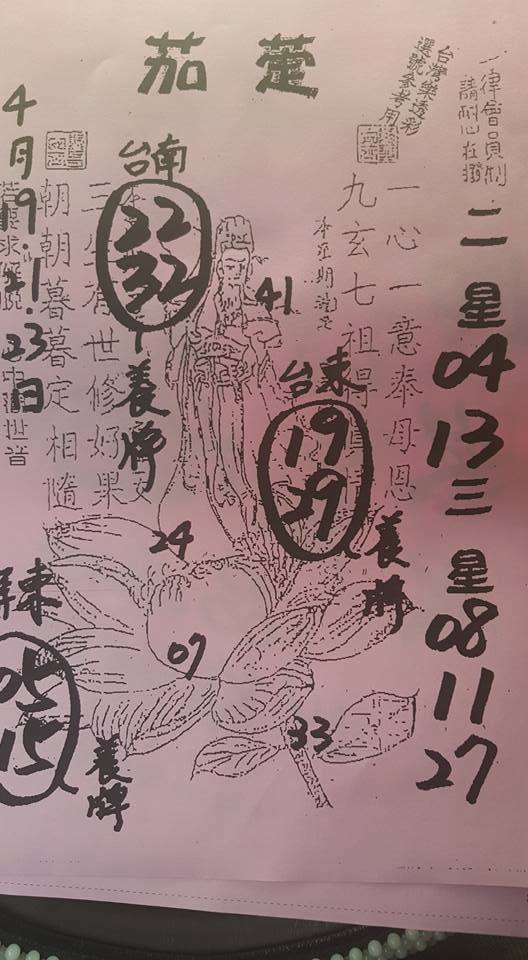 茄萣
一律會員制
請耐心在撥
台灣樂透彩
選號參考用
二星
04
13
三星
08
11
27
一心一意奉母恩
九玄七祖得
台東
19
29
養牌
41
台南
22
32
養牌
世修好果
朝朝暮暮定相隨
4月19.21.23日
24
07
33
屏東
05
15
養牌